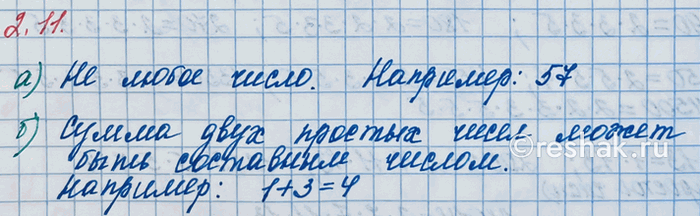 2.11.
а) Не любое число. Например: 57
б) Сумма двух простых чисел может
быть составным числом.
Например: 1+3=4
reshak.ru